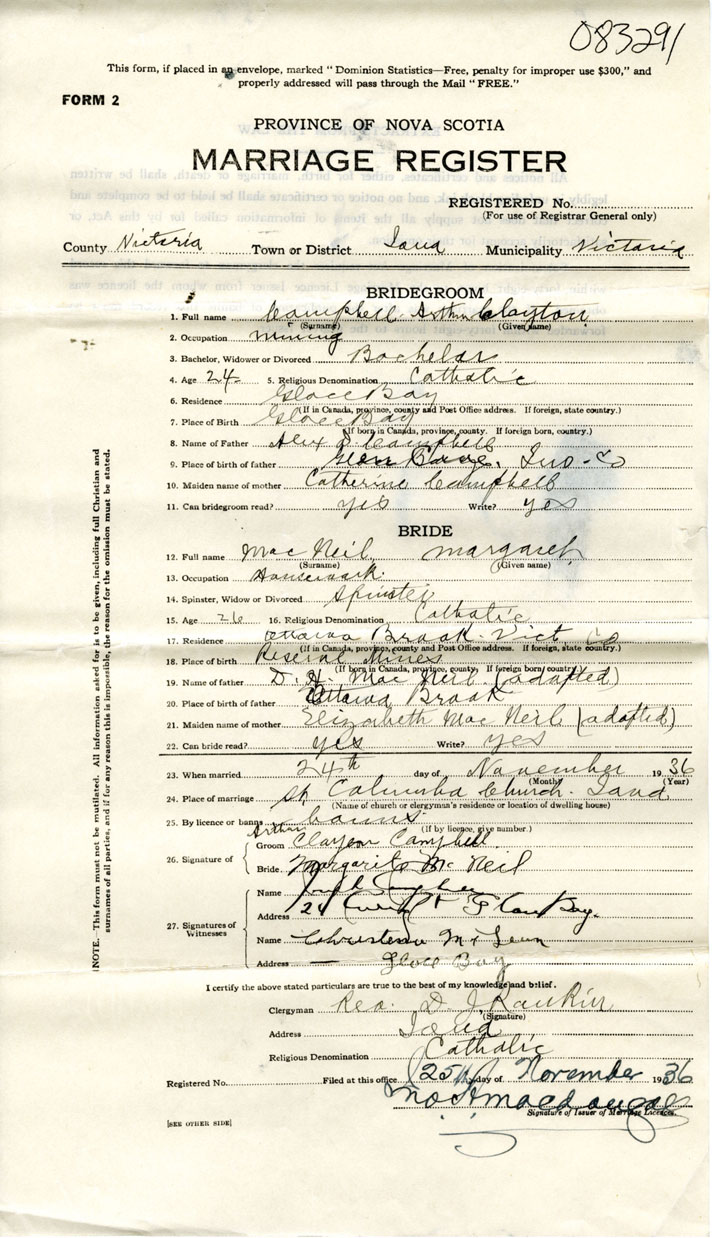 083291
This form, if placed in an envelope, marked "Dominion Statistics—Free, penalty for improper use $300," and
properly addressed will pass through the Mail "FREE."
FORM 2
PROVINCE OF NOVA SCOTIA
MARRIAGE REGISTER
REGISTERED No.
(For use of Registrar General only)
County Victoria Town or District Iona Municipality Victoria
BRIDEGROOM
1. Full name Campbell Arthur Clayton
(Surname) (Given name)
2. Occupation mining
3. Bachelor, Widower or Divorced Bachelor
4. Age 24 5. Religious Denomination Catholic
6. Residence Glace Bay
(If in Canada, province, county and Post Office address. If foreign, state country.)
7. Place of Birth Glace Bay
(If born in Canada, province, county. If foreign born, country.)
8. Name of Father Alex Campbell
9. Place of birth of father Co
10. Maiden name of mother Catherine Campbell
11. Can bridegroom read? yes Write? yes
BRIDE
12. Full name Mac Neil, margaret
(Surname) (Given name)
13. Occupation Housework
14. Spinster, Widow or Divorced Spinster
15. Age 26 16. Religious Denomination Catholic
17. Residence Ottawa Brook Vict Co
(If in Canada, province, county and Post Office address. If foreign, state country.)
18. Place of birth Reserve Mines
(If born in Canada, province, county. If foreign born, country.)
19. Name of father D. H. Mac Neil (adopted)
20. Place of birth of father Ottawa Brook
21. Maiden name of mother Elizabeth Mac Neil (adopted)
22. Can bride read? yes Write? yes
23. When married 24th day of November 1936
(Month) (Year)
24. Place of marriage St Columba Church. Iona
(Name of church or clergyman's residence or location of dwelling house)
25. By licence or banns banns
(If by licence, give number.)
26. Signature of
Arthur
Groom Clayton Campbell
Bride Margarite Mc Neil
27. Signatures of Witnesses
Name
Address 24 Glace Bay.
Name
Address — Glace Bay
I certify the above stated particulars are true to the best of my knowledge and belief.
Clergyman Rev. D J Rankin
(Signature)
Address Iona
Religious Denomination Catholic
Registered No. Filed at this office 25th day of November 1936
Signature of Issuer of Marriage Licences.
[SEE OTHER SIDE]
NOTE. This form must not be mutilated. All information asked for is to be given, including full Christian and
surnames of all parties, and if for any reason this is impossible, the reason for the omission must be stated.